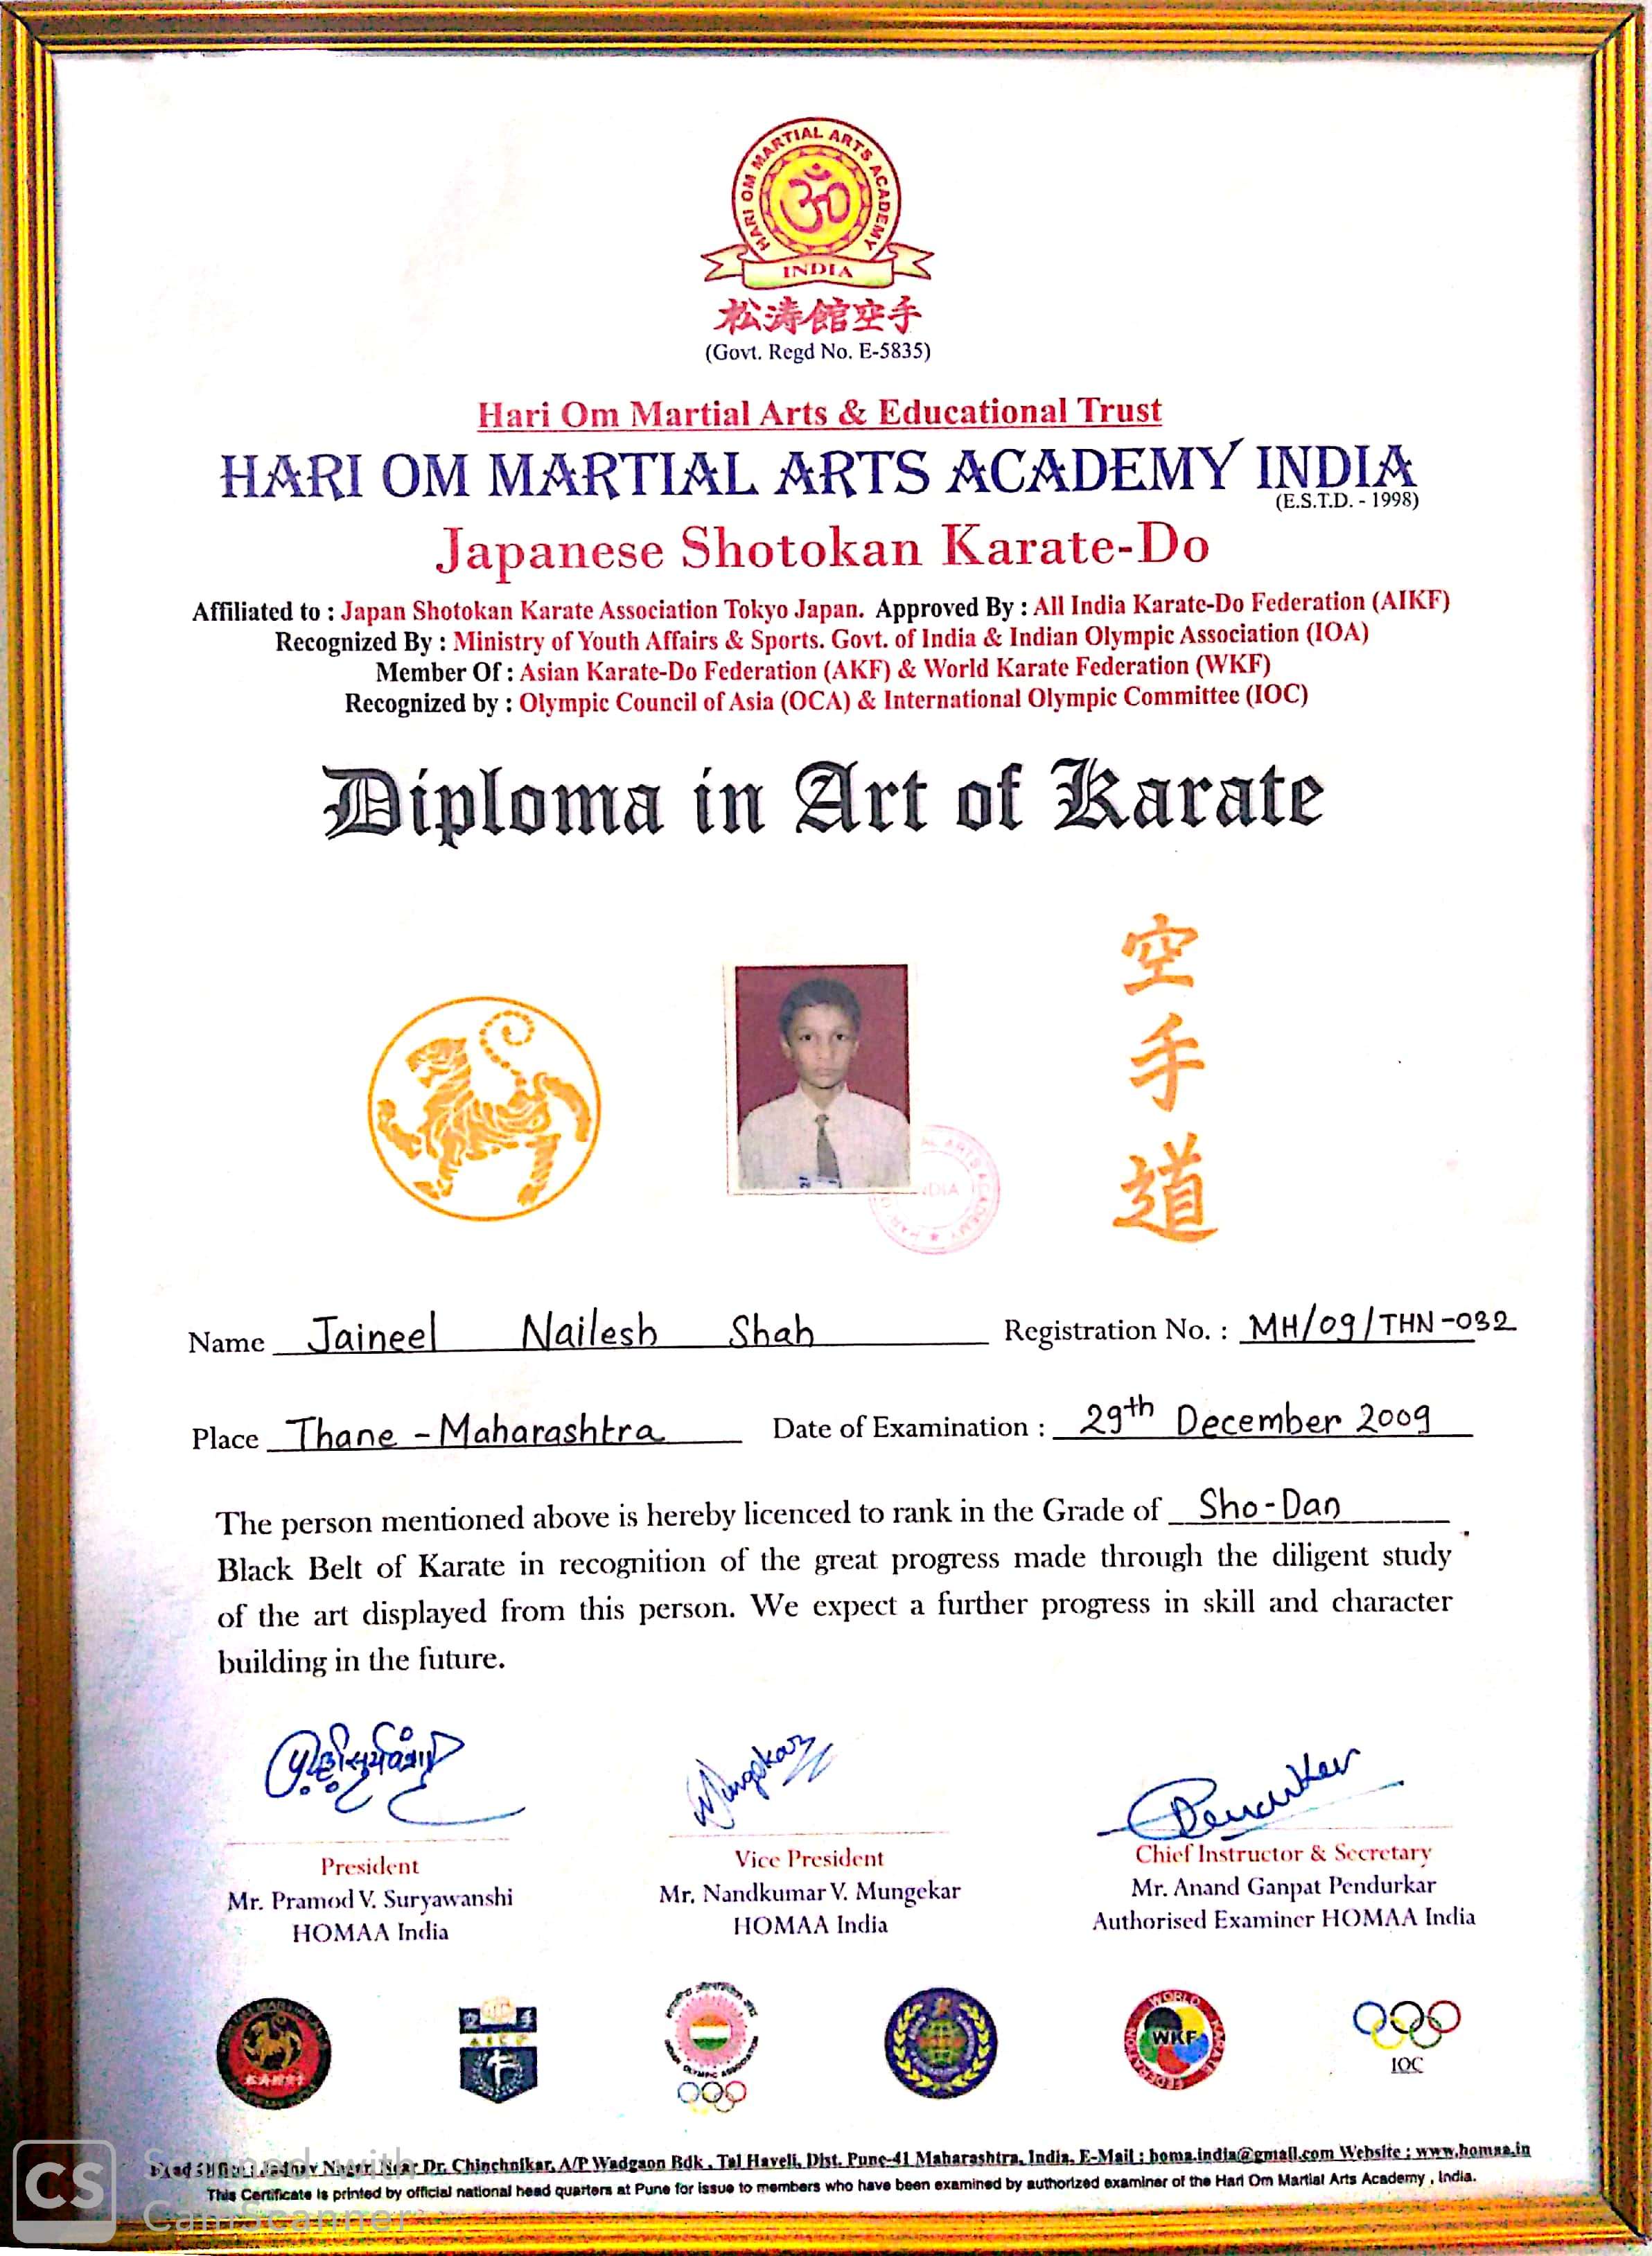 HARI OM MARTIAL ARTS ACADEMY
INDIA
松涛館空手
(Govt. Regd No. E-5835)
Hari Om Martial Arts & Educational Trust
HARI OM MARTIAL ARTS ACADEMY INDIA
(E.S.T.D. - 1998)
Japanese Shotokan Karate-Do
Affiliated to : Japan Shotokan Karate Association Tokyo Japan. Approved By : All India Karate-Do Federation (AIKF)
Recognized By : Ministry of Youth Affairs & Sports. Govt. of India & Indian Olympic Association (IOA)
Member Of : Asian Karate-Do Federation (AKF) & World Karate Federation (WKF)
Recognized by : Olympic Council of Asia (OCA) & International Olympic Committee (IOC)
Diploma in Art of Karate
空
手
道
Name Jaineel Nailesh Shah Registration No. : MH/09/THN-032
Place Thane - Maharashtra Date of Examination : 29th December 2009
The person mentioned above is hereby licenced to rank in the Grade of Sho-Dan
Black Belt of Karate in recognition of the great progress made through the diligent study
of the art displayed from this person. We expect a further progress in skill and character
building in the future.
Mungekar
Pendurkar
President
Mr. Pramod V. Suryawanshi
HOMAA India
Vice President
Mr. Nandkumar V. Mungekar
HOMAA India
Chief Instructor & Secretary
Mr. Anand Ganpat Pendurkar
Authorised Examiner HOMAA India
WORLD KARATE FEDERATION
WKF
IOC
Near Dr. Chinchnikar, A/P Wadgaon Bdk, Tal Haveli, Dist. Pune-41 Maharashtra, India. E-Mail : homa.india@gmail.com Website : www.homaa.in
This Certificate is printed by official national head quarters at Pune for issue to members who have been examined by authorized examiner of the Hari Om Martial Arts Academy , India.
CS
Scanned with
CamScanner